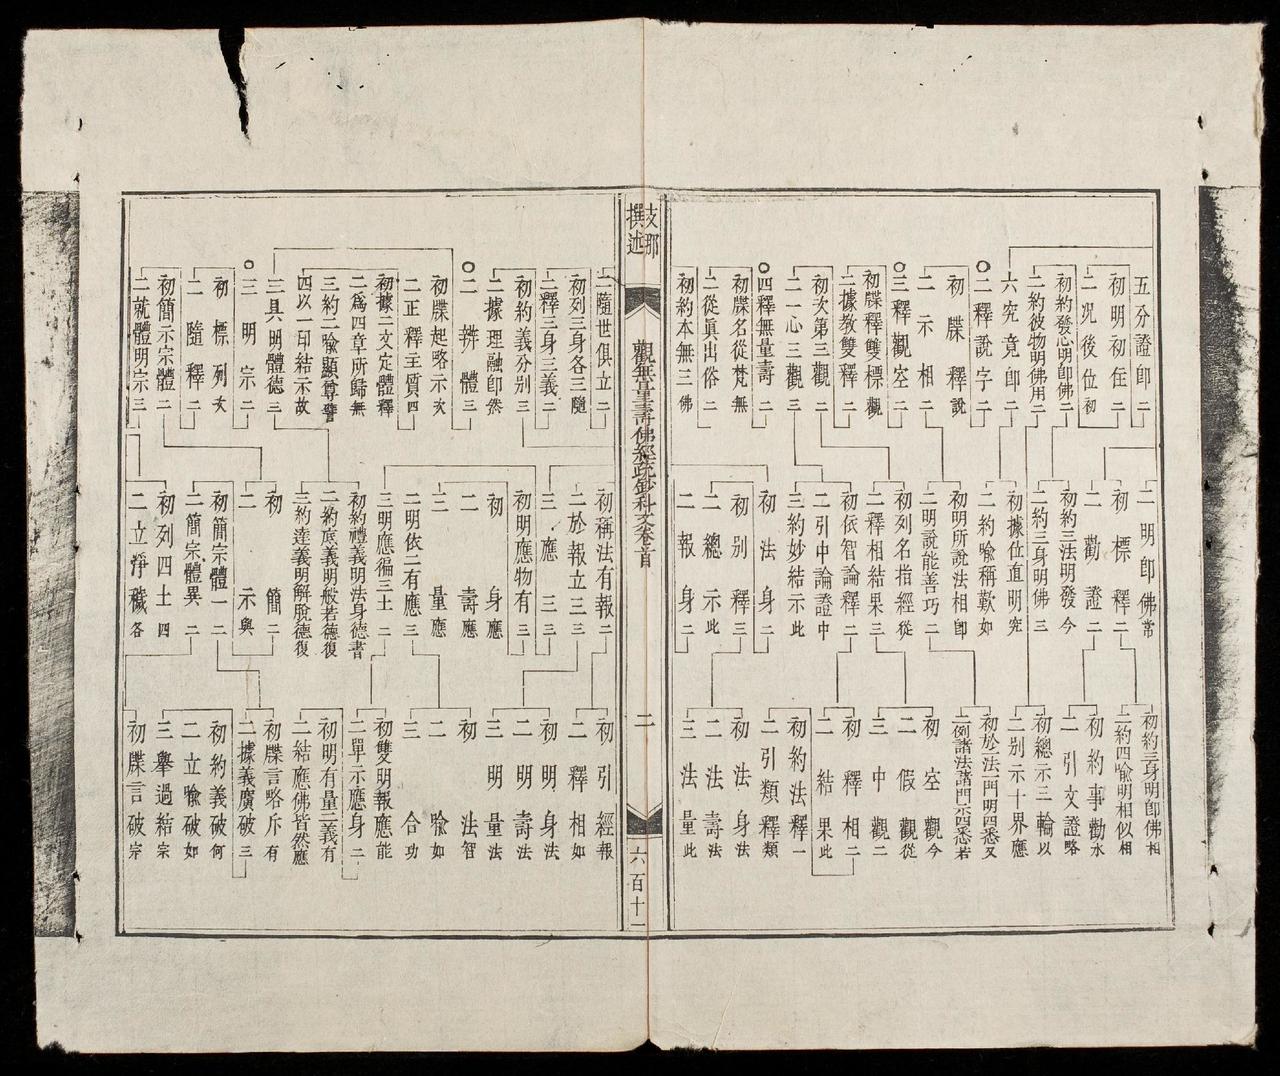 五分證卽二
初明初住二
二況後位初
初約發心明卽佛二
二約彼物明佛用二
六究竟卽二
二釋說字二
初牒釋說
二示相二
三釋觀空二
初牒釋雙標觀
二據教雙釋二
初次第三觀二
二一心三觀三
四釋無量壽二
初牒名從梵無
二從眞出俗二
初約本無三佛
二明卽佛常
初標釋二
二勸證二
初約三法明發今
二約三身明佛三
初據位直明究
二約喩稱歎如
初明所說法相卽
二明說能善巧二
初列名指經從
二釋相結果三
初依智論釋二
二引中論證中
三約妙結示此
初法身二
初別釋三
二總示此
二報身二
初約三身明卽佛相
二約四喩明相似相
初約事勸水
二引文證略
初總示三輪以
二別示十界應
初於一法一門明四悉又
二例諸法諸門示四悉若
初空觀今
二假觀從
三中觀二
初釋相二
二結果此
初約法釋一
二引類釋類
初法身法
二法壽法
三法量此
支那
撰述
觀無量壽佛經疏鈔科文卷首
二
六百十一
二隨世俱立二
初列三身各三隨
二釋三身三義二
初約義分別三
二據理融卽然
二辨體三
初牒起略示次
二正釋主質四
初據二文定體釋
二爲四章所歸無
三約二喩顯尊譬
四以一印結示故
三具明體德三
三明宗二
初標列次
二隨釋二
初簡示宗體二
二就體明宗三
初稱法有報二
二於報立三三
三應三三
初明應物有三
初身應
二壽應
三量應
二明依二有應三
三明應徧三土二
初約禮義明法身德書
二約底義明般若德復
三約達義明解脫德復
初簡二
二示與
初簡宗體一二
二簡宗體異二
初列四土四
二立淨穢各
初引經報
二釋相如
初明身法
二明壽法
三明量法
初法智
二喩如
三合功
初雙明報應能
二單示應身二
初明有量三義有
二結應佛皆然應
初牒言略斥有
二據義廣破三
初約義破何
二立喩破如
三舉過結宗
初牒言破宗